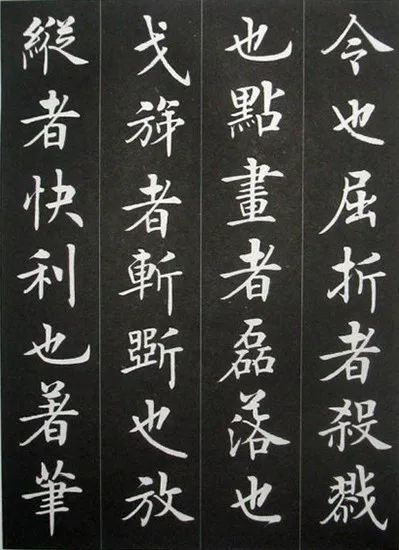 令也屈折者殺戮
也點畫者磊落也
戈旆者斬斲也放
縱者快利也著筆